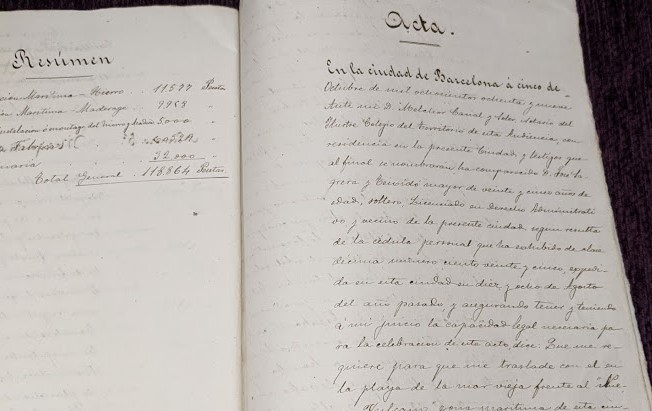 Resúmen
ción Marítima - Hierro. 11577 Pesetas
n Marítima - Maderage. 9958 "
nstalacion ó montage del muro y madera 5000 "
32.000
Total General. 118.864 Pesetas.
Acta.
En la ciudad de Barcelona á cinco de
Octubre de mil ochocientos ochenta y nueve
Ante mi D. Melchor Canal y Soler, notario del
Ilustre Colegio del Territorio de esta Audiencia, con
residencia en la presente Ciudad, y testigos que
al final se nombraran ha comparecido D. José
y mayor de veinte y cinco años de
edad, soltero, Licenciado en Derecho Administrati
vo y vecino de la presente ciudad segun resulta
de la cédula personal que ha exhibido de clase
décima número ciento veinte y cinco, expedi-
da en esta ciudad en diez y ocho de Agosto
del año pasado, y asegurando tener y teniendo
á mi juicio la capacidad legal necesaria pa
ra la celebracion de este acto, dice: Que me re-
quiere para que me traslade con el en
la playa de la mar vieja frente al
Vulcano zona marítima de esta ciu